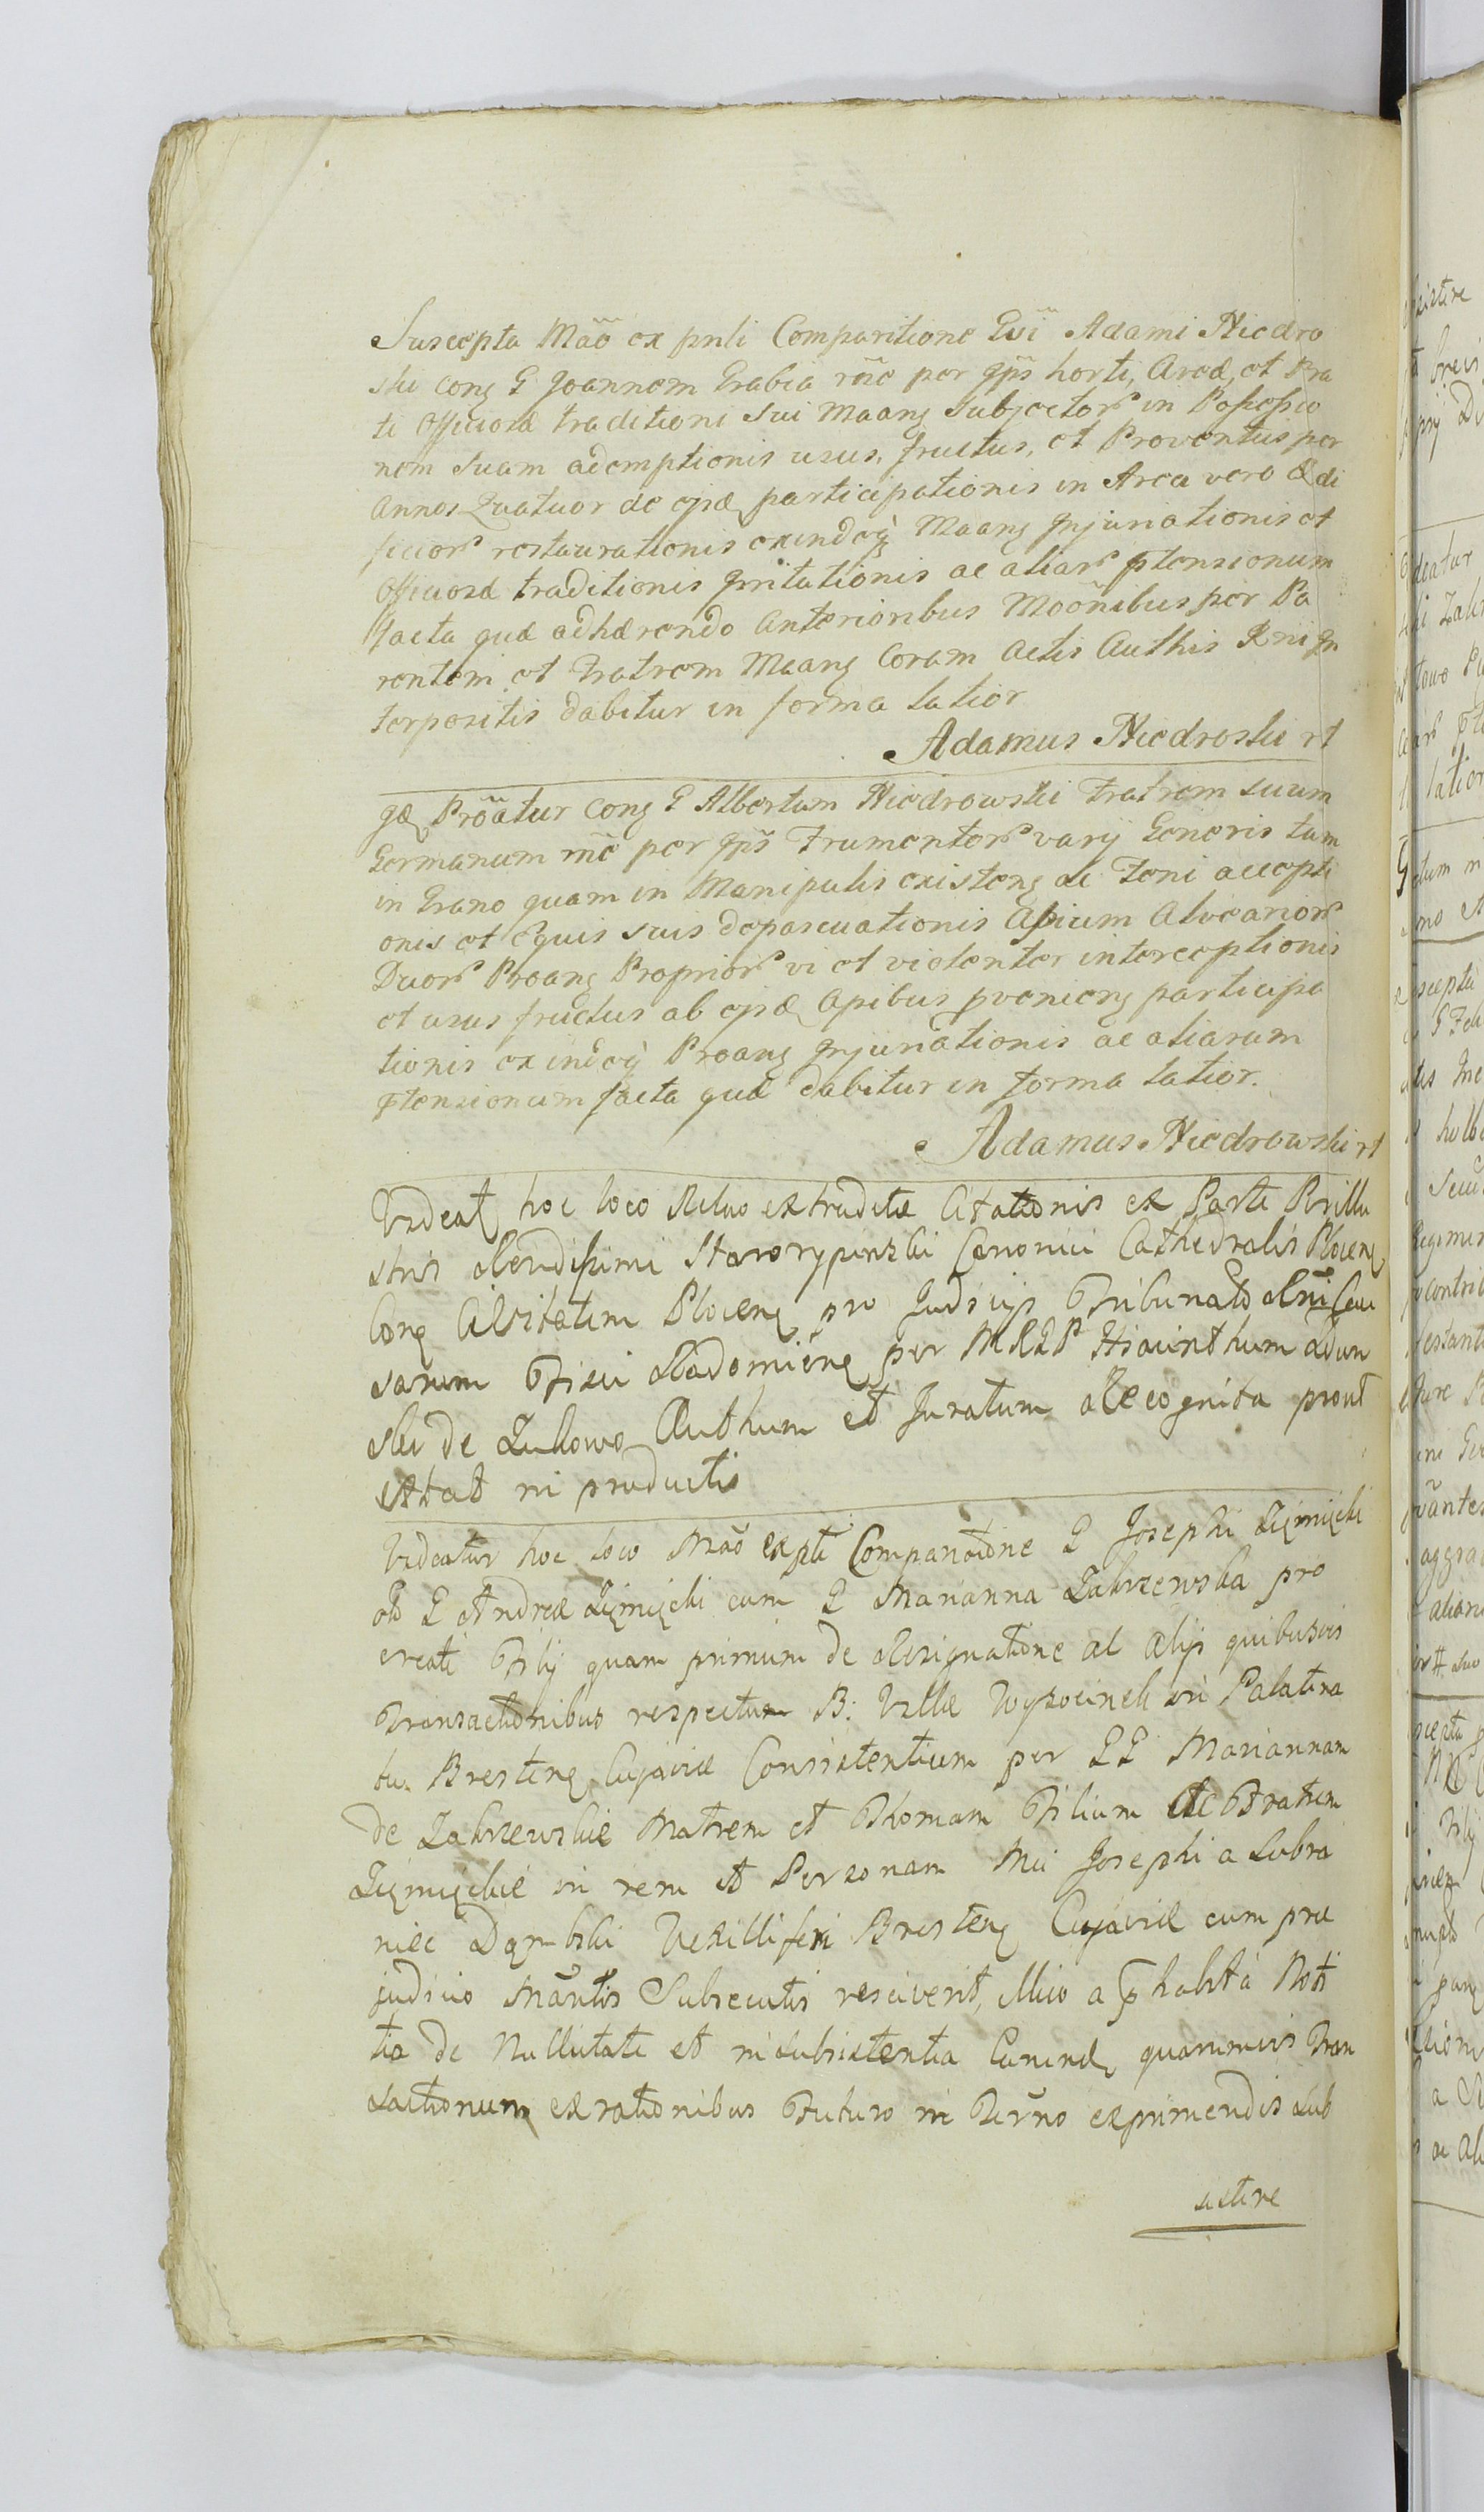 Suscepta Mão ex pnli Comparitione Gsi Adami Niedro
ski cong G Joannem Grabia rõe per Ipš horti, Areæ, et Pra
ti Officiosæ traditioni sui Maang Subjector in Possessio
nem suam ademptionis usus, fructus, et Proventus per
Annos Quatuor de ejsd participationis in Area vero Ædi
ficior restaurationis exindeq Maang Injuriationis et
Officiosæ traditionis Irritationis ac aliar ptensionum
facta quæ adhærendo Anterioribus Moõnibus per Pa
rentem et Fratrem Maang Coram Actis Authis Rni In
terpositis dabitur in forma latior
Adamus Niedroski rt
Isd Proãtur cong G Albertum Niedrowski Fratrem suum
Germanum rõe per Ipš Frumentor varij Generis tam
in Grano quam in Manipulis existeng ac Foni accepti
onis et Equis suis depascuationis Apium Alvearior
Duor Proang Proprior vi et violenter interceptionis
et usus fructus ab ejsd Apibus pvenieng participa
tionis exindeq Proang Injuriationis ac aliarum
ptensionum facta quæ dabitur in forma latior.
Adamus Niedrowski rt
Videat hoc loco Rlao extraditæ Citationis ex Parte Perillu
stris Rendissimi Starorypinski Canonici Cathedralis Plocen
Cong Civitatem Plocen pro Judicijs Tribunato Rni Cau
sarum Fisci Radomien per MRDP Hiacinthum
ski de Zukowo Authum et Juratum Recognita prout
Stat in productis
Videatur hoc loco Mão ex pti Comparatione G Josephi
olo G Andreæ cum G Marianna Zakrzewska pro
creati Filij quam primum de Resignatione ac Alijs quibusvis
Transactionibus respectu B: Villæ Wysocinek in Palatina
tu Bresteng Cujaviæ Consistentium per GG Mariannam
de Zakrzewskie Matrem et Thomam Filium Ac Fratrem
in rem et Personam Mci Josephi a Lubra
niec Dąmbski Vexilliferi Bresteng Cujaviæ cum præ
judicio Mãntis Subsecutis resciverit, illico a p habita Noti
tia de Nullitate et insubsistentia Earund quarumvis Tran
sactionum ex rationibus Futuro in Termno exprimendis sub
sistere